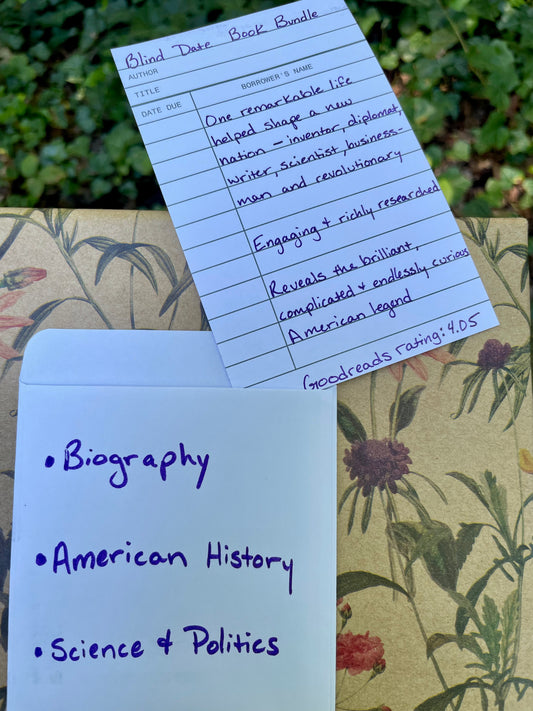 Blind Date Book Bundle
AUTHOR
TITLE
DATE DUE
BORROWER'S NAME
One remarkable life
helped shape a new
nation – inventor, diplomat,
writer, scientist, business-
man and revolutionary
Engaging + richly researched
Reveals the brilliant,
complicated + endlessly curious
American legend
Goodreads rating: 4.05
• Biography
• American History
• Science + Politics